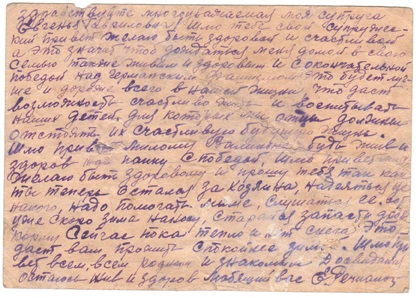 здравствуйте многоуважаемая моя супруга
Евгения Гавриловна Шлю тебе свой супружес-
кий привет желаю быть здоровой и счастливой
и это значит чтоб дождаться меня домой в свою
семью также живым и здоровым и с окончательной
победой над германским фашизмом это будет луч-
ше и дороже всего в нашей жизни, что даст
возможность счастливо жить и воспитывать
наших детей, для которых мы отцы должны
отстоять их счастливую будущую жизнь.
Шлю привет милому будь жив и
здоров жди папку с победой, Шлю привет
желаю быть здоровому и прошу тебя так как
ты теперь остался за хозяина надеяться не
на кого, надо помогать маме слушаться ее, вот
уже скоро зима на носу, старайся запасти дров
корму Сейчас пока тепло и нет снега Это
даст вам прожить спокойнее зиму. Шлю при-
вет всем, всем родным и знакомым До свидания
остаюсь жив и здоров любящий вас С.